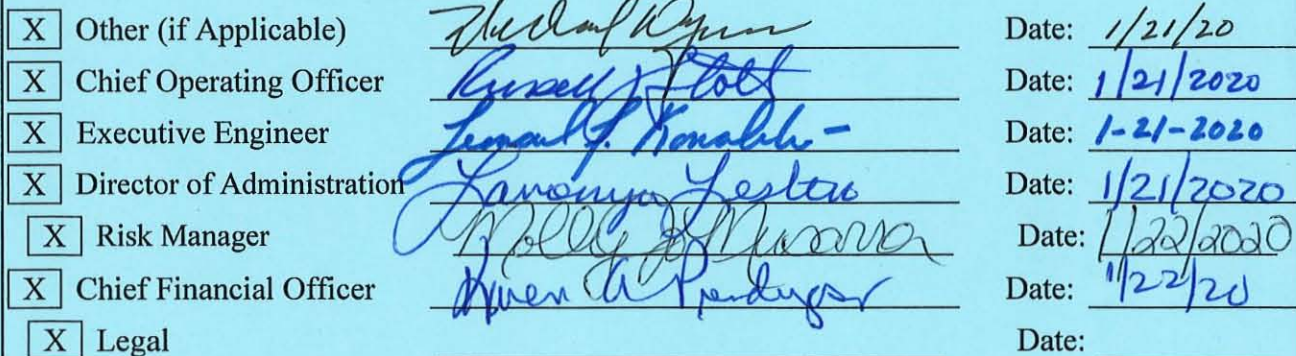 X Other (if Applicable) Date: 1/21/20
X Chief Operating Officer Russell Stott Date: 1/21/2020
X Executive Engineer Date: 1-21-2020
X Director of Administration Date: 1/21/2020
X Risk Manager Molly Date: 1/22/2020
X Chief Financial Officer Date: 1/22/20
X Legal Date: